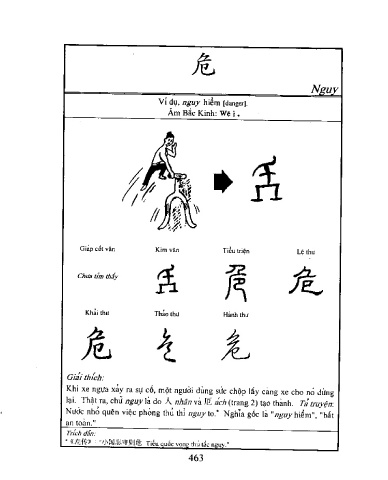 危
Nguy
Ví dụ, nguy hiểm [danger].
Âm Bắc Kinh: Wēi.
Giáp cốt văn Kim văn Tiểu triện Lệ thư
Chưa tìm thấy
危
Khải thư Thảo thư Hành thư
危 危 危
Giải thích:
Khi xe ngựa xảy ra sự cố, một người dùng sức chộp lấy càng xe cho nó dừng
lại. Thật ra, chữ nguy là do 人 nhân và 厄 ách (trang 2) tạo thành. Tả truyện:
"Nước nhỏ quên việc phòng thủ thì nguy to." Nghĩa gốc là "nguy hiểm", "bất
an toàn."
Trích dẫn:
*《左传》: "小国忘守则危 Tiểu quốc vong thủ tắc nguy."
463